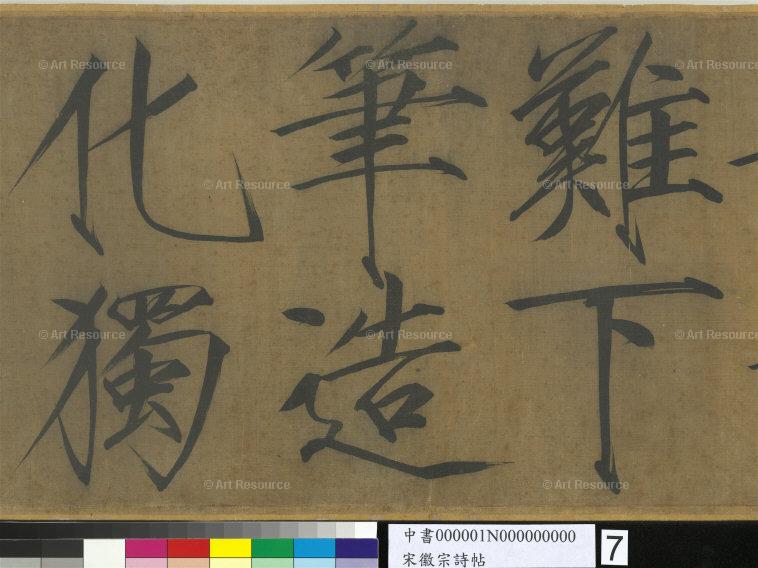 難下
筆造
化獨
中書000001N000000000
宋徽宗詩帖
7
© Art Resource
© Art Resource
© Art Resource
© Art Resource
© Art Resource
© Art Resource
© Art Resource
© Art Resource
© Art Resource
© Art Resource
© Art Resource